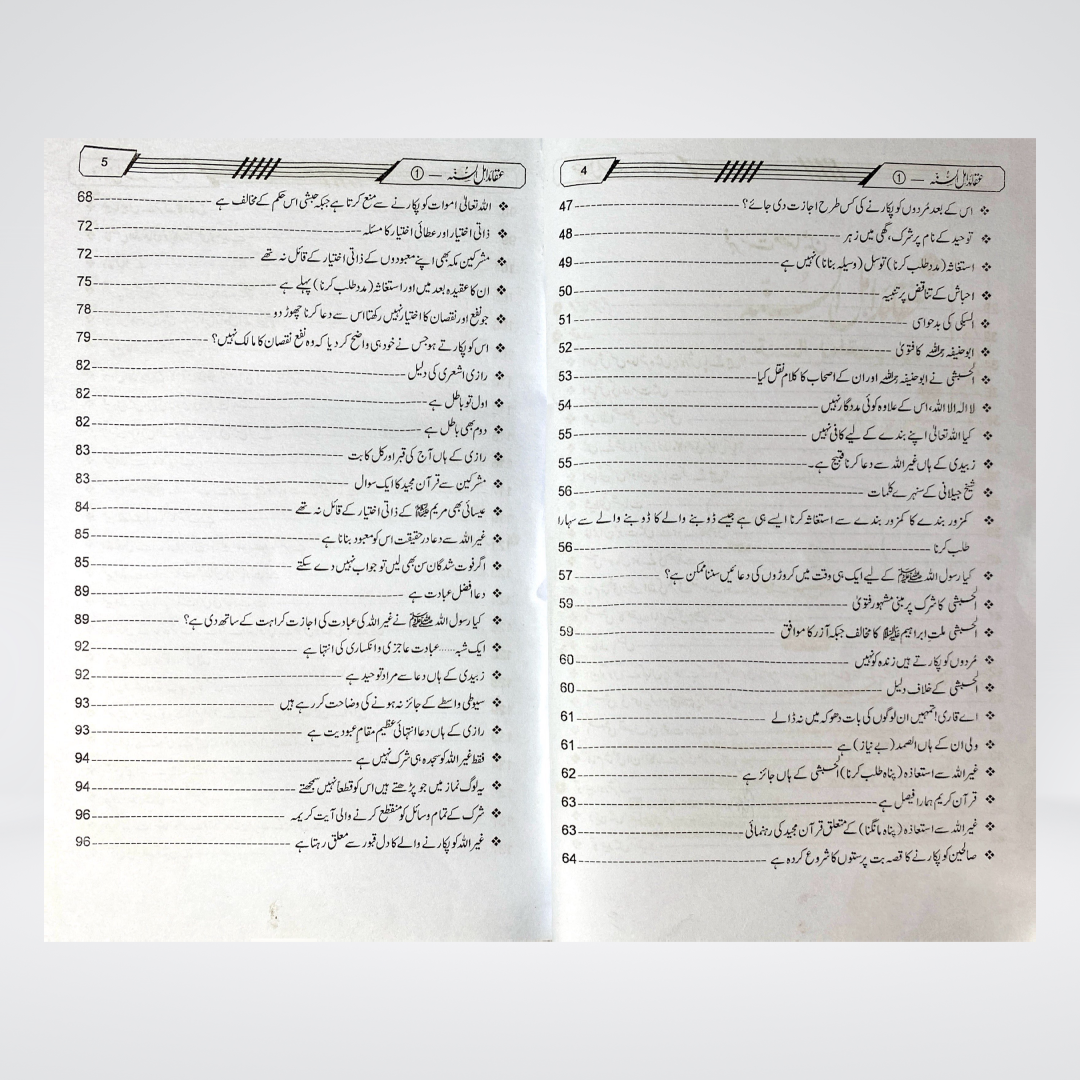 4 عقائد اہل السنۃ — ①
❖ اس کے بعد مُردوں کو پکارنے کی کس طرح اجازت دی جائے؟ 47
❖ توحید کے نام پر شرک، گھی میں زہر 48
❖ استغاثہ (مدد طلب کرنا) توسل (وسیلہ بنانا) نہیں ہے 49
❖ احباش کے تناقض پر تنبیہ 50
❖ السبکی کی بدحواسی 51
❖ ابوحنیفہ رحمہ اللہ کا فتویٰ 52
❖ الحبشی نے ابوحنیفہ رحمہ اللہ اور ان کے اصحاب کا کلام نقل کیا 53
❖ لا الہ الا اللہ، اس کے علاوہ کوئی مددگار نہیں 54
❖ کیا اللہ تعالیٰ اپنے بندے کے لیے کافی نہیں 55
❖ زبیدی کے ہاں غیر اللہ سے دعا کرنا قبیح ہے۔ 55
❖ شیخ جیلانی کے سنہرے کلمات 56
❖ کمزور بندے کا کمزور بندے سے استغاثہ کرنا ایسے ہی ہے جیسے ڈوبنے والے کا ڈوبنے والے سے سہارا
طلب کرنا 56
❖ کیا رسول اللہ ﷺ کے لیے ایک ہی وقت میں کروڑوں کی دعائیں سننا ممکن ہے؟ 57
❖ الحبشی کا شرک پر مبنی مشہور فتویٰ 59
❖ الحبشی ملتِ ابراہیم علیہ السلام کا مخالف جبکہ آزر کا موافق 59
❖ مُردوں کو پکارتے ہیں زندہ کو نہیں 60
❖ الحبشی کے خلاف دلیل 60
❖ اے قاری! تمہیں ان لوگوں کی بات دھوکہ میں نہ ڈالے 61
❖ ولی ان کے ہاں الصمد (بے نیاز) ہے 61
❖ غیر اللہ سے استعاذہ (پناہ طلب کرنا) الحبشی کے ہاں جائز ہے 62
❖ قرآن کریم ہمارا فیصل ہے 63
❖ غیر اللہ سے استعاذہ (پناہ مانگنا) کے متعلق قرآن مجید کی رہنمائی 63
❖ صالحین کو پکارنے کا قصہ بت پرستوں کا شروع کردہ ہے 64
5 عقائد اہل السنۃ — ①
❖ اللہ تعالیٰ اموات کو پکارنے سے منع کرتا ہے جبکہ حبشی اس حکم کے مخالف ہے 68
❖ ذاتی اختیار اور عطائی اختیار کا مسئلہ 72
❖ مشرکین مکہ بھی اپنے معبودوں کے ذاتی اختیار کے قائل نہ تھے 72
❖ ان کا عقیدہ بعد میں اور استغاثہ (مدد طلب کرنا) پہلے ہے 75
❖ جو نفع اور نقصان کا اختیار نہیں رکھتا اس سے دعا کرنا چھوڑ دو 78
❖ اس کو پکارتے ہو جس نے خود ہی واضح کر دیا کہ وہ نفع نقصان کا مالک نہیں؟ 79
❖ رازی اشعری کی دلیل 82
❖ اول تو باطل ہے 82
❖ دوم بھی باطل ہے 82
❖ رازی کے ہاں آج کی قبر اور کل کا بت 83
❖ مشرکین سے قرآن مجید کا ایک سوال 83
❖ عیسائی بھی مریم علیہا السلام کے ذاتی اختیار کے قائل نہ تھے 84
❖ غیر اللہ سے دعا در حقیقت اس کو معبود بنانا ہے 85
❖ اگر فوت شدگان سن بھی لیں تو جواب نہیں دے سکتے 85
❖ دعا افضل عبادت ہے 89
❖ کیا رسول اللہ ﷺ نے غیر اللہ کی عبادت کی اجازت کراہت کے ساتھ دی ہے؟ 89
❖ ایک شبہ...... عبادت عاجزی و انکساری کی انتہا ہے 92
❖ زبیدی کے ہاں دعا سے مراد توحید ہے 92
❖ سیوطی واسطے کے جائز نہ ہونے کی وضاحت کر رہے ہیں 93
❖ رازی کے ہاں دعا انتہائی عظیم مقامِ عبودیت ہے 93
❖ فقط غیر اللہ کو سجدہ ہی شرک نہیں ہے 94
❖ یہ لوگ نماز میں جو پڑھتے ہیں اس کو قطعاً نہیں سمجھتے 94
❖ شرک کے تمام وسائل کو منقطع کرنے والی آیت کریمہ 96
❖ غیر اللہ کو پکارنے والے کا دل قبور سے معلق رہتا ہے 96